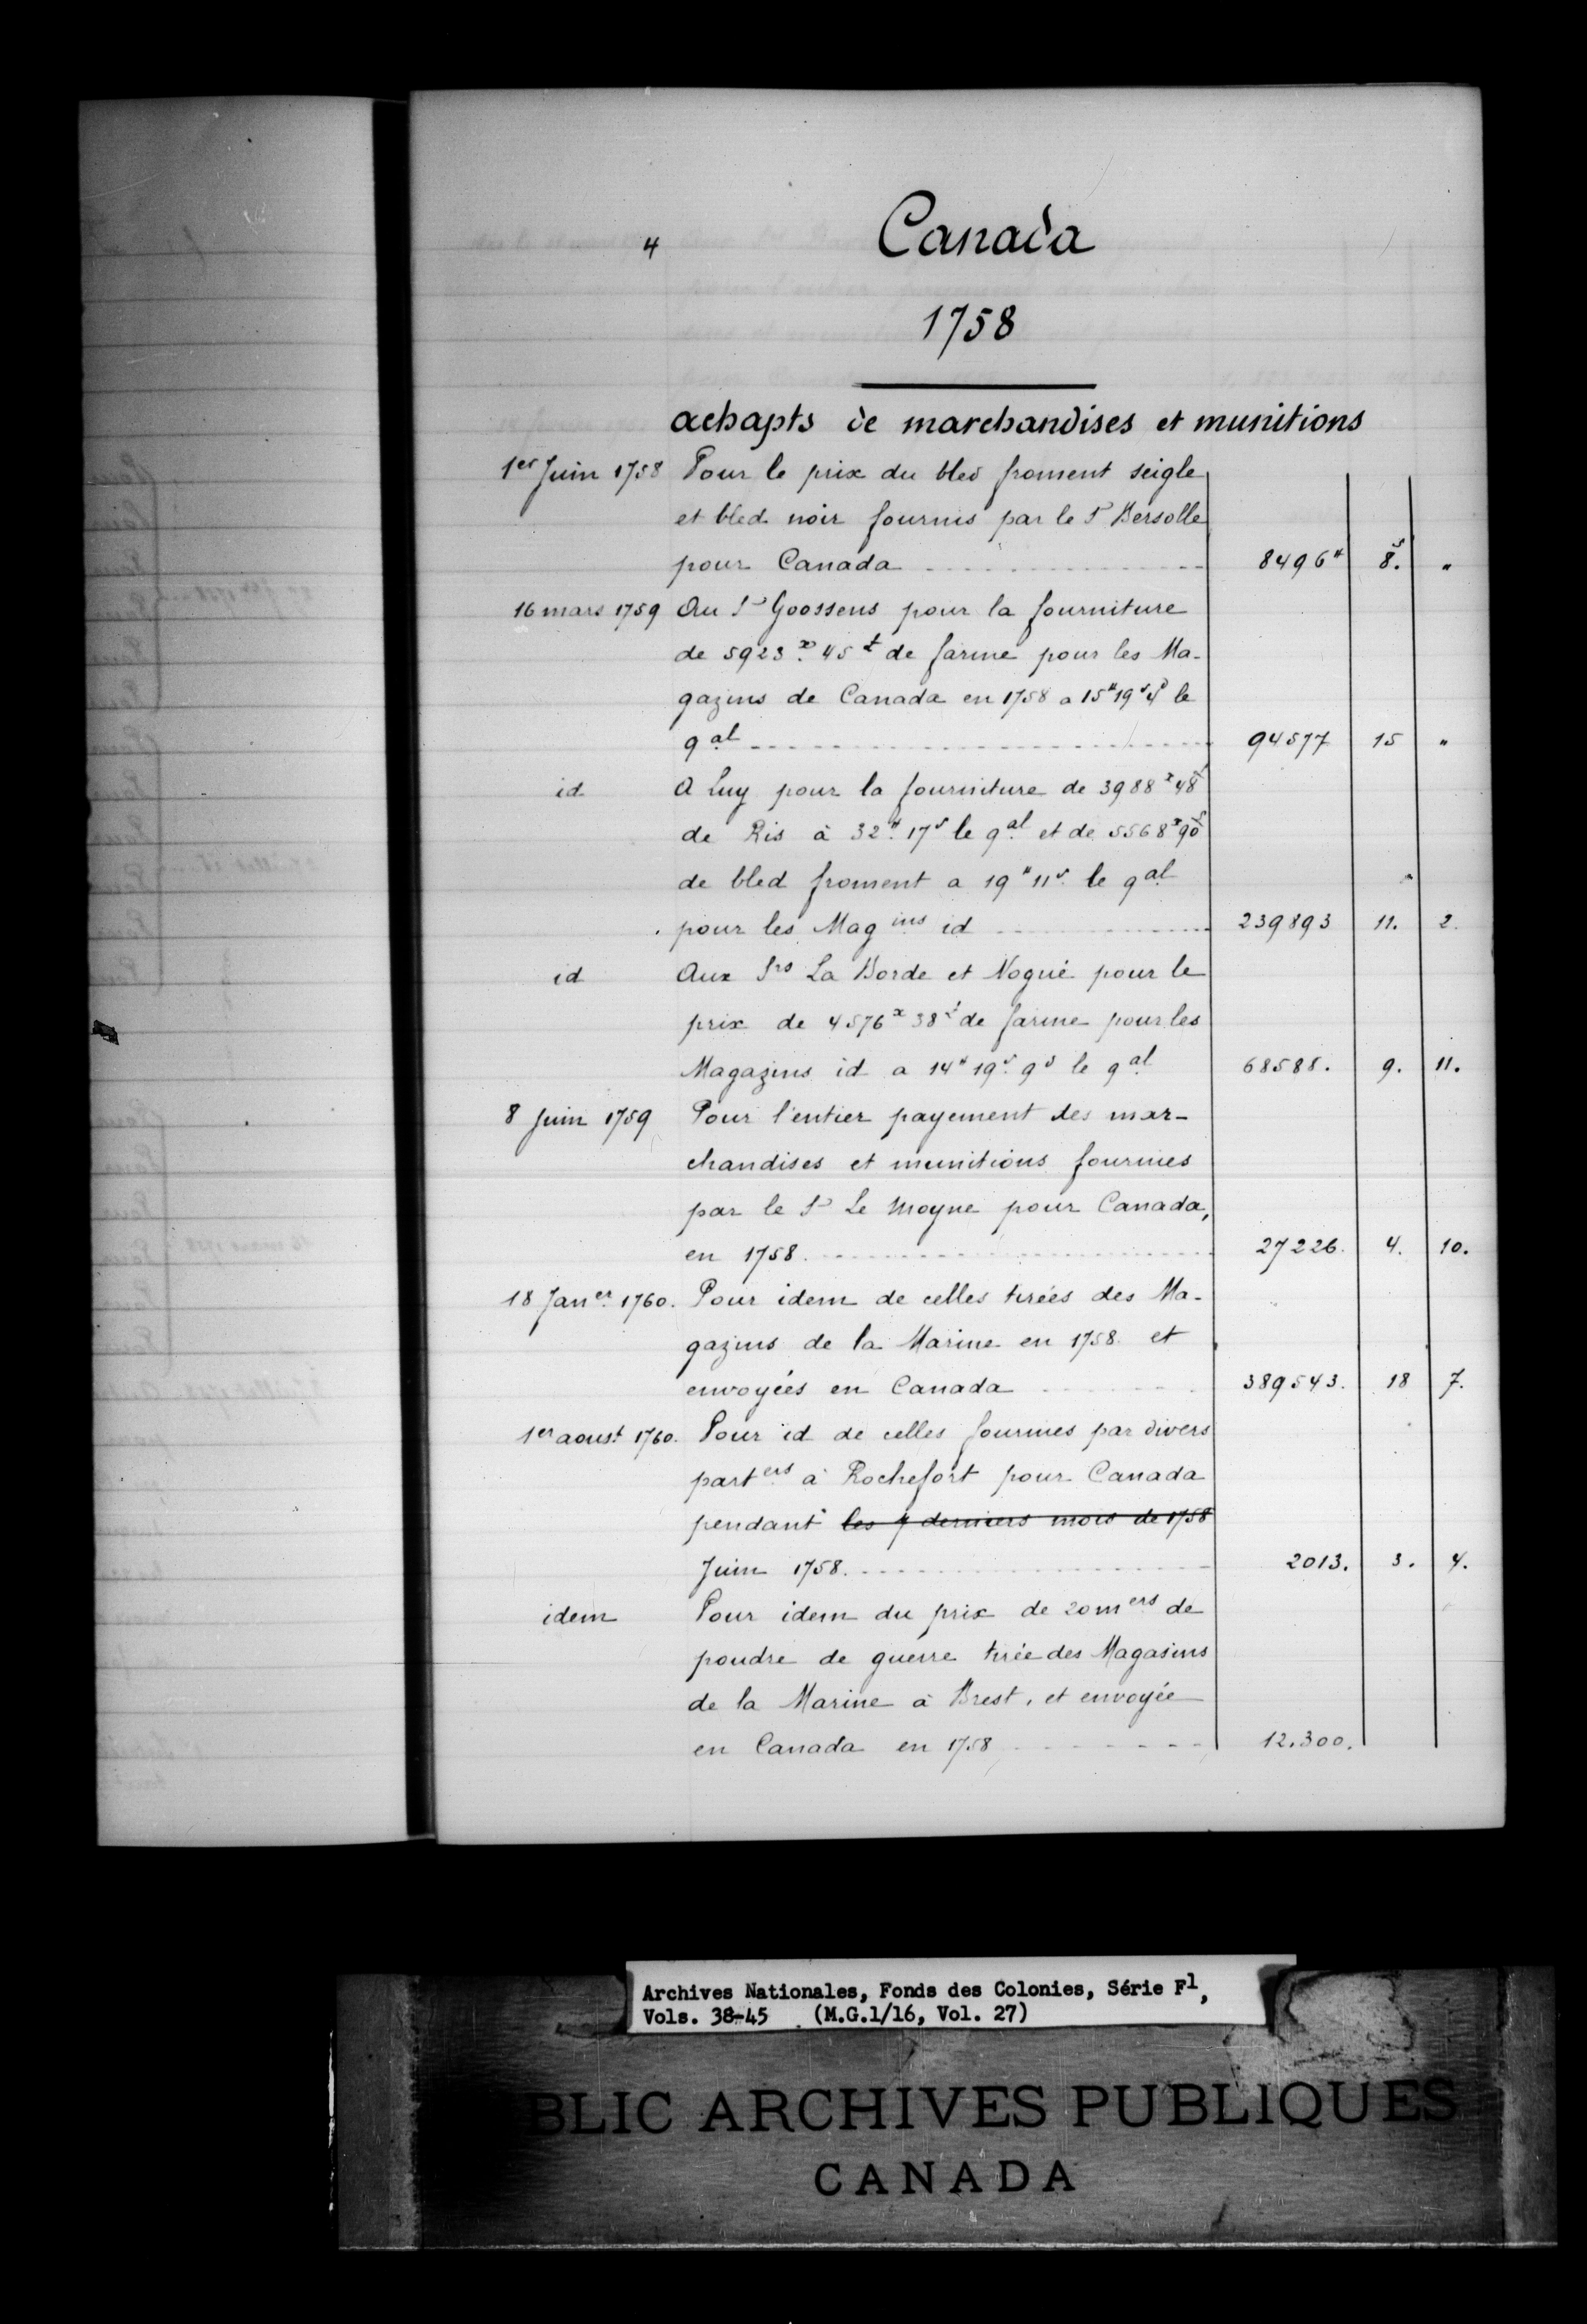 4
Canada
1758
achapts de marchandises et munitions
1er Juin 1758 Pour le prix du bled froment seigle
et bled noir fournis par le Sr Bersolle
pour Canada 8496# 8s. "
16 mars 1759 Au Sr Goossens pour la fourniture
de 5923x. 45t de farine pour les Ma-
gazins de Canada en 1758 a 15# 19s 4d le
qal 94577 15 "
id A Luy pour la fourniture de 3988x 48t
de Ris à 32# 17s le qal et de 5568x 90t
de bled froment a 19# 11s le qal
pour les Magins id 239893 11. 2.
id Aux Srs La Borde et Nogué pour le
prix de 4576x 38t de farine pour les
Magazins id a 14# 19s 9d le qal 68588. 9. 11.
8 Juin 1759 Pour l'entier payement des mar-
chandises et munitions fournies
par le Sr Le Moyne pour Canada,
en 1758. 27226. 4. 10.
18 Janer 1760. Pour idem de celles tirées des Ma-
gazins de la Marine en 1758 et
envoyées en Canada 389543. 18 7.
1er aoust 1760. Pour id de celles fournies par divers
parters à Rochefort pour Canada
pendant les 7 derniers mois de 1758
Juin 1758. 2013. 3. 4.
idem Pour idem du prix de 20 mers de
poudre de guerre tirée des Magasins
de la Marine à Brest, et envoyée
en Canada en 1758 12.300.
Archives Nationales, Fonds des Colonies, Série F1,
Vols. 38-45 (M.G.1/16, Vol. 27)
BLIC ARCHIVES PUBLIQUES
CANADA